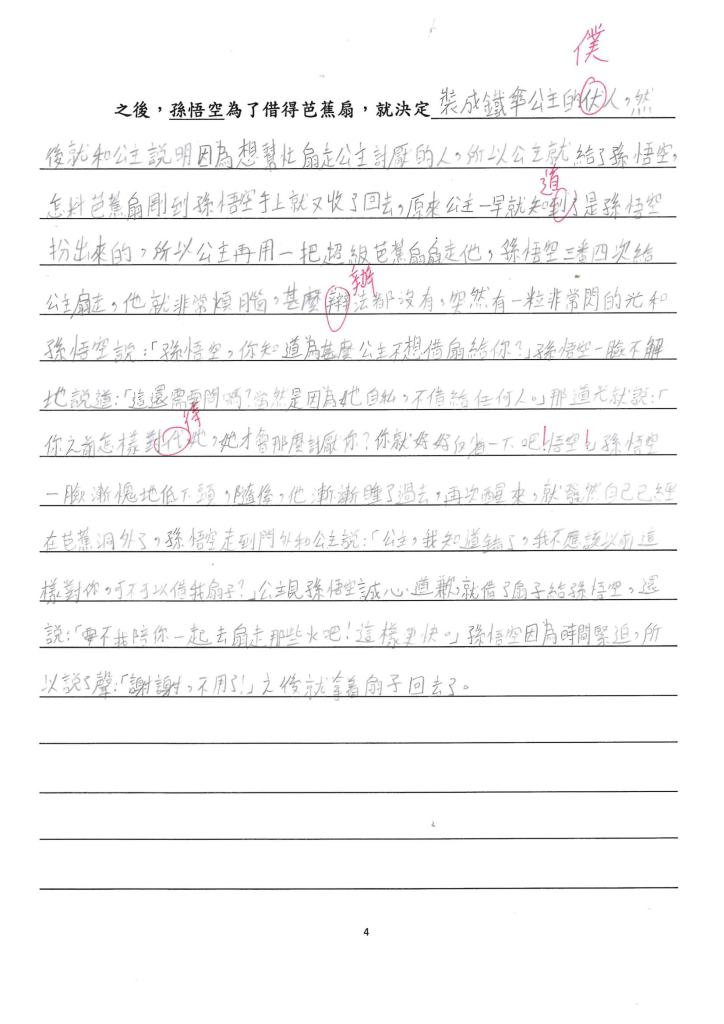 僕
之後，孫悟空為了借得芭蕉扇，就決定裝成鐵傘公主的伏人，然
後就和公主說明因為想幫忙扇走公主討厭的人，所以公主就給了孫悟空，
道
怎料芭蕉扇剛到孫悟空手上就又收了回去，原來公主一早就知到了是孫悟空
扮出來的，所以公主再用一把超級芭蕉扇扇走他，孫悟空三番四次給
辦
公主扇走，他就非常煩腦，甚麼辯法都沒有，突然有一粒非常閃的光和
孫悟空說：「孫悟空，你知道為甚麼公主不想借扇給你？」孫悟空一臉不解
地說道：「這還需要問嗎？當然是因為她自私，不借給任何人。」那道光就說：「
待
你之前怎樣對代她，她才會那麼討厭你？你就好好反省一下吧！悟空！」孫悟空
一臉漸愧地低下頭，隨後，他漸漸睡了過去，再次醒來，就發然自己已經
在芭蕉洞外了，孫悟空走到門外和公主說：「公主，我知道錯了，我不應該以前這
樣對你，可不可以借我扇子？」公主見孫悟空誠心道歉，就借了扇子給孫悟空，還
說：「要不我陪你一起去扇走那些火吧！這樣更快。」孫悟空因為時間緊迫，所
以說了聲：「謝謝，不用了！」之後就拿着扇子回去了。
4